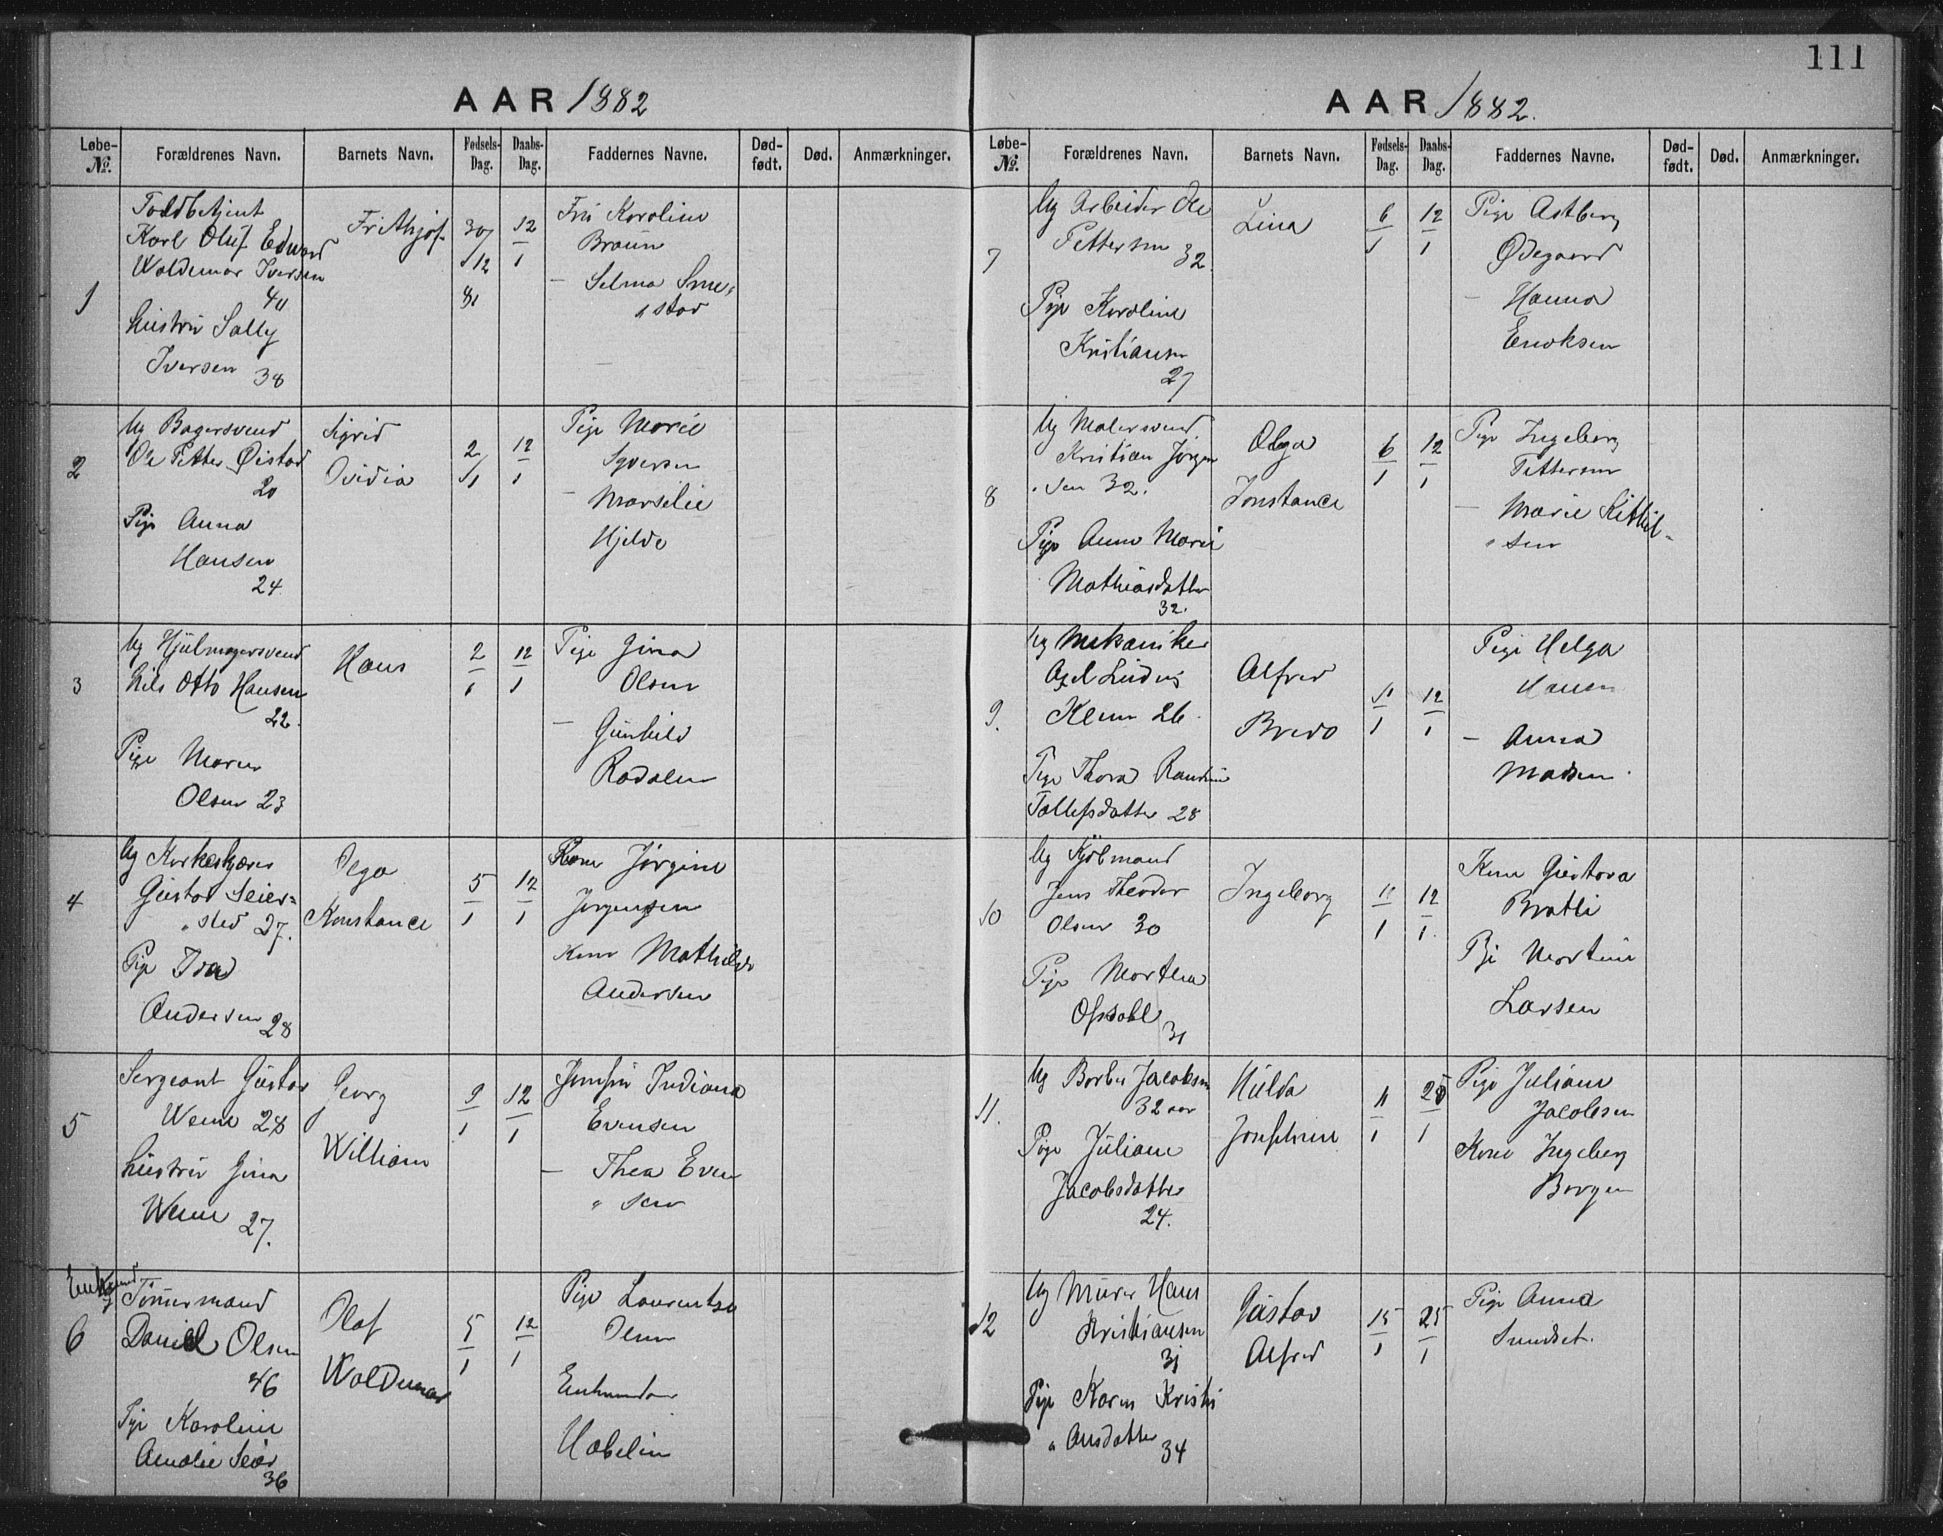 111
AAR 1882
Løbe-№. Forældrenes Navn. Barnets Navn. Fødsels-Dag. Daabs-Dag. Faddernes Navne. Død-født. Død. Anmærkninger.
1
Toldbetjent
Karl Oluf Edvard
Woldemar Iversen
40
Hustru Sally
Iversen 38
Frithjof
30/12 81
12/1
Fru Karoline
Braun
— Selma Sme-
stad
2
Ug Bagersvend
Ole Petter Øistad
20
Pige Anna
Hansen
24
Sigrid
Ovidia
2/1
12/1
Pige Marie
Syversen
— Marselie
Hjelde
3
Ug Hjulmagersvend
Nils Otto Hansen
22.
Pige Maren
Olsen 23
Hans
2/1
12/1
Pige Gina
Olsen
— Gunhild
Rodalen
4
Ug Korkeskjærer
Gustav Seier-
sted 27.
Pige Ida
Andersen 28
Olga
Konstance
5/1
12/1
Kone Jørgine
Jørgensen
Kone Mathilde
Andersen
5
Sergeant Gustav
Wenn 28
Hustru Gina
Wenn 27.
Georg
William
9/1
12/1
Jomfru Indiana
Evensen
— Thea Even
sen
6
Enkemand
Tømmermand
Daniel Olsen
46
Pige Karoline
Amalie Seier
36
Olaf
Woldemar
5/1
12/1
Pige Laurentse
Olsen
AAR 1882.
Løbe-№. Forældrenes Navn. Barnets Navn. Fødsels-Dag. Daabs-Dag. Faddernes Navne. Død-født. Død. Anmærkninger.
7
Ug Arbeider Ole
Pettersen 32
Pige Karoline
Kristiansen
27
Lina
6/1
12/1
Pige Astberg
Ødegaard
— Hanna
Eriksen
8
Ug Malersvend
Kristian Jörgen
sen 32.
Pige Anne Marie
Mathiasdatter
32.
Olga
Constance
6/1
12/1
Pige Ingeborg
Pettersen
— Marie Kittil-
sen
9.
Ug Mekaniker
Axel Ludvig
Klem 26.
Pige Thora Randine
Tollefsdatter 28
Alfred
Bredo
11/1
12/1
Pige Helga
Hansen
— Anna
Madsen
10
Ug Kjøbmand
Jens Theodor
Olsen 30
Pige Marthea
Opsahl
31
Ingeborg
11/1
12/1
Kone Gustava
Bratli
Pige Martine
Larsen
11.
Ug Barber Jacobsen
32 aar
Pige Juliane
Jacobsdatter
24.
Hulda
Josephine
11/1
25/1
Pige Juliane
Jacobsen
Kone Ingeborg
Borgen
12
Ug Murer Hans
Kristiansen
31
Pige Karen Kristi
ansdatter 34
Gustav
Alfred
15/1
25/1
Pige Anna
Sundset.